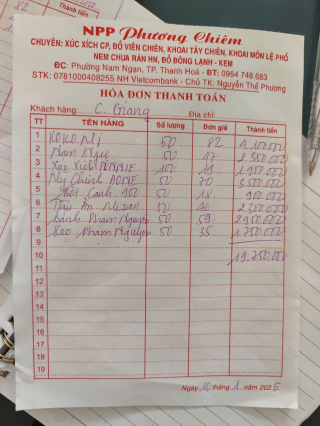 NPP Phương Chiêm
CHUYÊN: XÚC XÍCH CP, ĐỒ VIÊN CHIÊN, KHOAI TÂY CHIÊN, KHOAI MÔN LỆ PHỐ
NEM CHUA RÁN HN, ĐỒ ĐÔNG LẠNH - KEM
ĐC: Phường Nam Ngạn, TP. Thanh Hoá - ĐT: 0964 746 683
STK: 0781000408255 NH Vietcombank - Chủ TK: Nguyễn Thế Phương
HÓA ĐƠN THANH TOÁN
Khách hàng: C. Giang Địa chỉ:
TT TÊN HÀNG Số lượng Đơn giá Thành tiền
1 KOKOMI 50 82 4.100.000
2 50 17
3 Xúc Xích 100 19 1.900.000
4 50 70 3.500.000
5 50 18 900.000
6 50
7 Phạm Nguyên 50 59 2.950.000
8 Keo Phạm Nguyên 50 35 1.750.000
9
10 19.750.000
11
12
13
14
15
16
17
18
19
Ngày 10 tháng 1 năm 2025